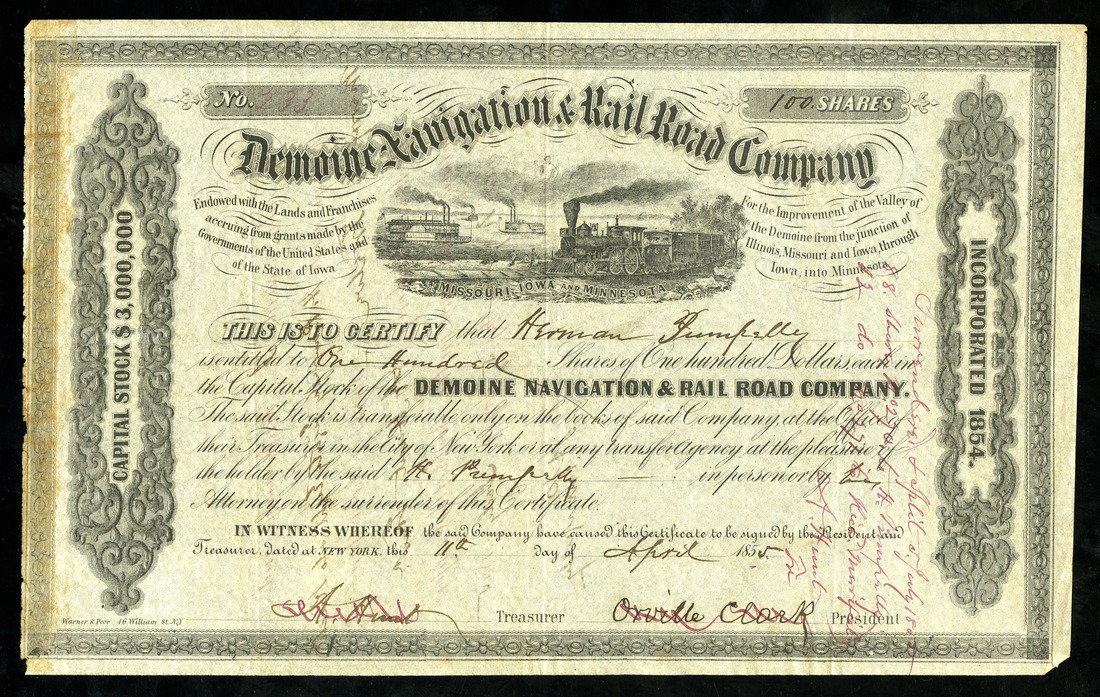 No. 233
100 SHARES
Demoine Navigation & Rail Road Company
Endowed with the Lands and Franchises
accruing from grants made by the
Governments of the United States and
of the State of Iowa
For the Improvement of the Valley of
the Demoine from the junction of
Illinois, Missouri and Iowa, through
Iowa, into Minnesota
MISSOURI, IOWA AND MINNESOTA
CAPITAL STOCK $3,000,000
INCORPORATED 1854.
THIS IS TO CERTIFY that Herman Pumpelly
is entitled to One Hundred Shares of One hundred Dollars, each in
the Capital Stock of the DEMOINE NAVIGATION & RAIL ROAD COMPANY.
The said Stock is transferable only on the books of said Company, at the Office of
their Treasurer in the City of New York or at any transfer Agency at the pleasure of
the holder by the said H. Pumpelly in person or by his
Attorney, on the surrender of this Certificate.
IN WITNESS WHEREOF the said Company have caused this Certificate to be signed by the President and
Treasurer, dated at NEW YORK, this 11th day of April 1855
A. Hunt Treasurer Orville Clark President
Warner & Peer 46 William St. N.Y.
Surrendered & Split